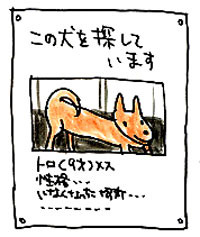 この犬を探して
います
トロ(9才)メス
性格...
いなくなった場所...